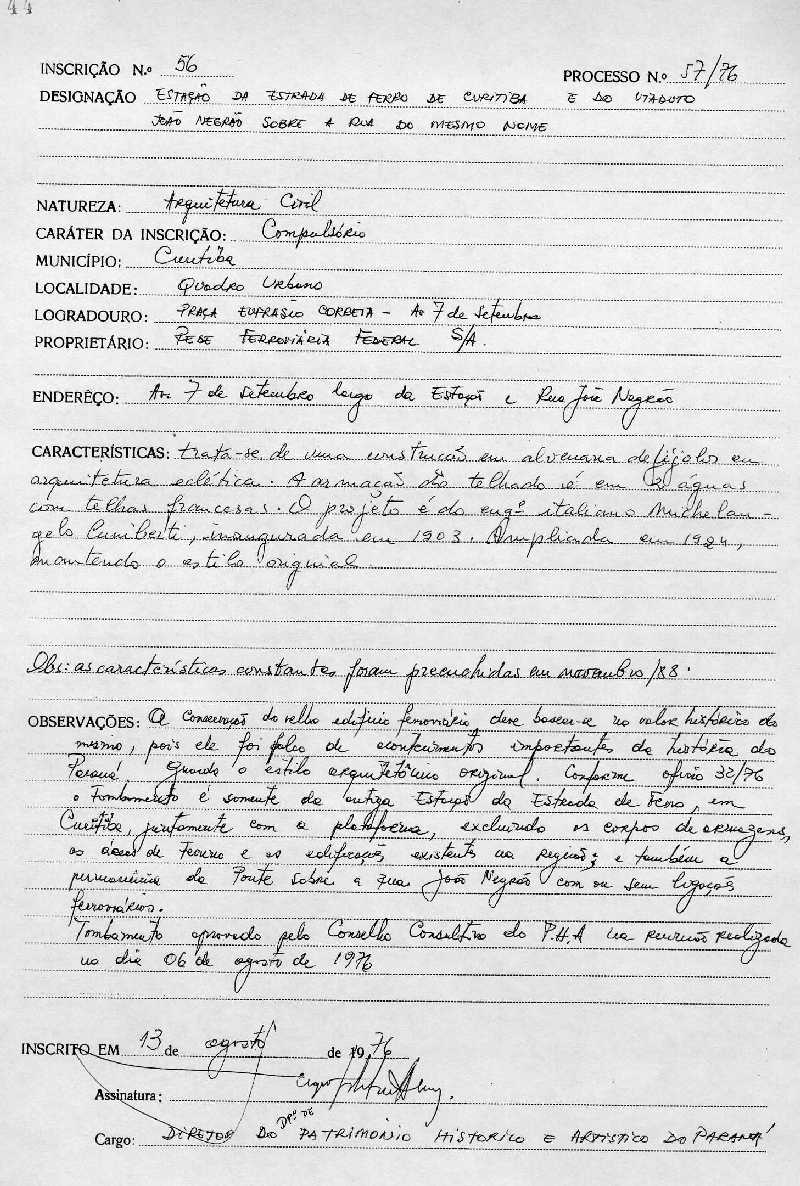 44
INSCRIÇÃO N.º 56
PROCESSO N.º 57/76
DESIGNAÇÃO ESTAÇÃO DA ESTRADA DE FERRO DE CURITIBA E DO VIADUTO
JOÃO NEGRÃO SOBRE A RUA DO MESMO NOME
NATUREZA: Arquitetura Civil
CARÁTER DA INSCRIÇÃO: Compulsório
MUNICÍPIO: Curitiba
LOCALIDADE: Quadro Urbano
LOGRADOURO: PRAÇA EUFRASIO CORREIA - Av 7 de Setembro
PROPRIETÁRIO: REDE FERROVIÁRIA FEDERAL S/A.
ENDERÊÇO: Av. 7 de Setembro largo da Estação e Rua João Negrão
CARACTERÍSTICAS: trata-se de uma construção em alvenaria de tijolos em
arquitetura eclética. A armação do telhado é em águas
com telhas francesas. O projeto é do engº italiano Michelan-
gelo Cuniberti, inaugurada em 1903. Ampliada em 1924,
mantendo o estilo original.
Obs: as características constantes foram preenchidas em novembro/88.
OBSERVAÇÕES: A Conservação do velho edifício ferroviário deve basear-se no valor histórico do
mesmo, pois ele foi palco de acontecimentos importantes da história do
Paraná. Guarda o estilo arquitetônico original. Conforme ofício 32/76
o Tombamento é somente da antiga Estação da Estrada de Ferro, em
Curitiba, juntamente com a plataforma, excluindo os corpos de armazens,
as áreas de recuo e as edificações existentes na região; e também a
permanência da Ponte sobre a rua João Negrão com ou sem ligações
ferroviárias.
Tombamento aprovado pelo Conselho Consultivo do P.H.A na reunião realizada
no dia 06 de agosto de 1976
INSCRITO EM 13 de agosto de 1976
Assinatura:
Cargo: DIRETOR DO DPº DE PATRIMÔNIO HISTÓRICO E ARTÍSTICO DO PARANÁ